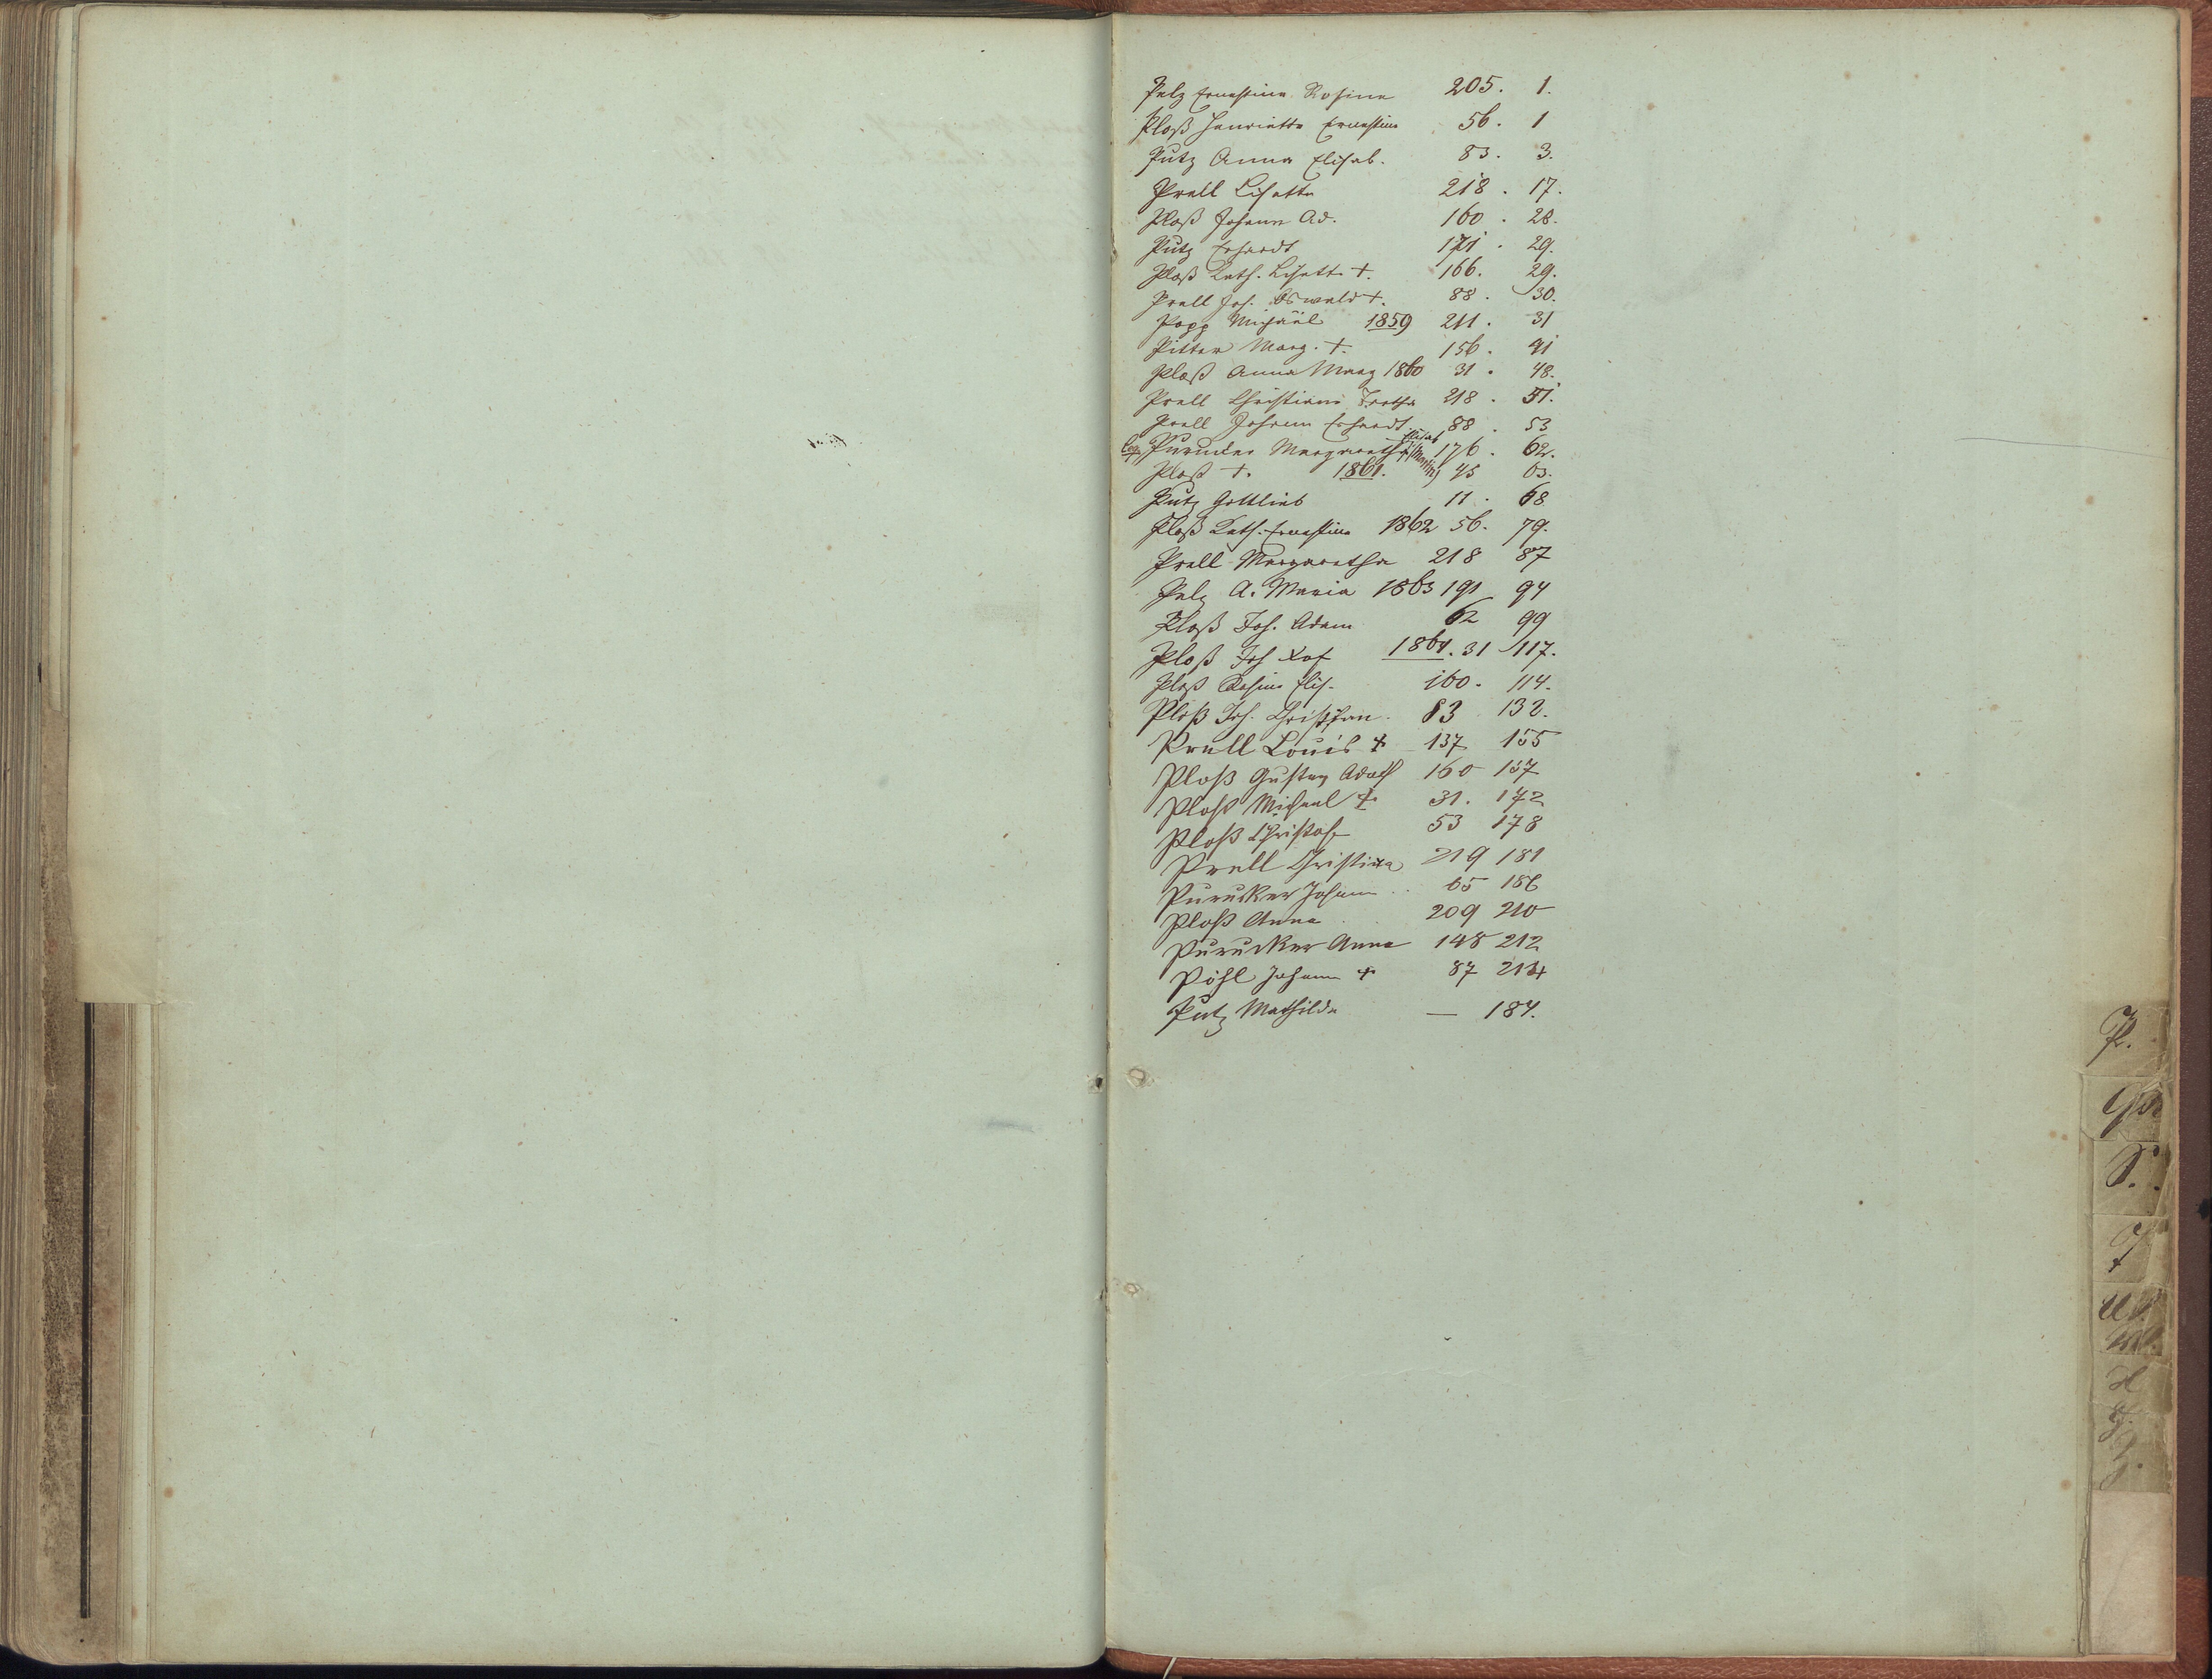 Pelz Ernestine Rosine 205. 1.
Ploß Henriette Ernestine 56. 1
Putz Anna Elisab. 83. 3.
Prell Lisette 218. 17.
Ploß Johann Ad. 160. 28.
Putz Erhardt 171. 29.
Ploß Kath. Lisette †. 166. 29.
Prell Joh. Oswald †. 88. 30.
Popp Michäel 1859 211. 31
Pitter Marg. †. 156. 41
Ploß Anna Marg 1860 31. 48.
Prell Christiane 218. 51.
Prell Johann Erhardt. 88. 53
Purucker Margaretha Elisab 176. 62.
Ploß †. 1861. 45 63.
Putz Gottlieb 11. 68
Ploß Kath. Ernestine 1862 56. 79.
Prell Margaretha 218 87
Pelz A. Maria 1863 191 94
Ploß Joh. Adam 62 99
Ploß Joh 1864. 31 117.
Ploß Rosine Elis. 160. 114.
Ploß Joh. Christian. 83 132.
Prell Louis † 137 155
Ploß Gustav Adolf 160 157
Ploß Michael † 31. 172
Ploß Christof 53 178
Prell Christina 219 181
Purucker Johann .. 65 186
Ploß Anna . . 209 210
Purucker Anna 148 212
Pöhl Johann † 87 214
Putz Mathilde — 184.
P.
S.
T
U.
W.
Z.